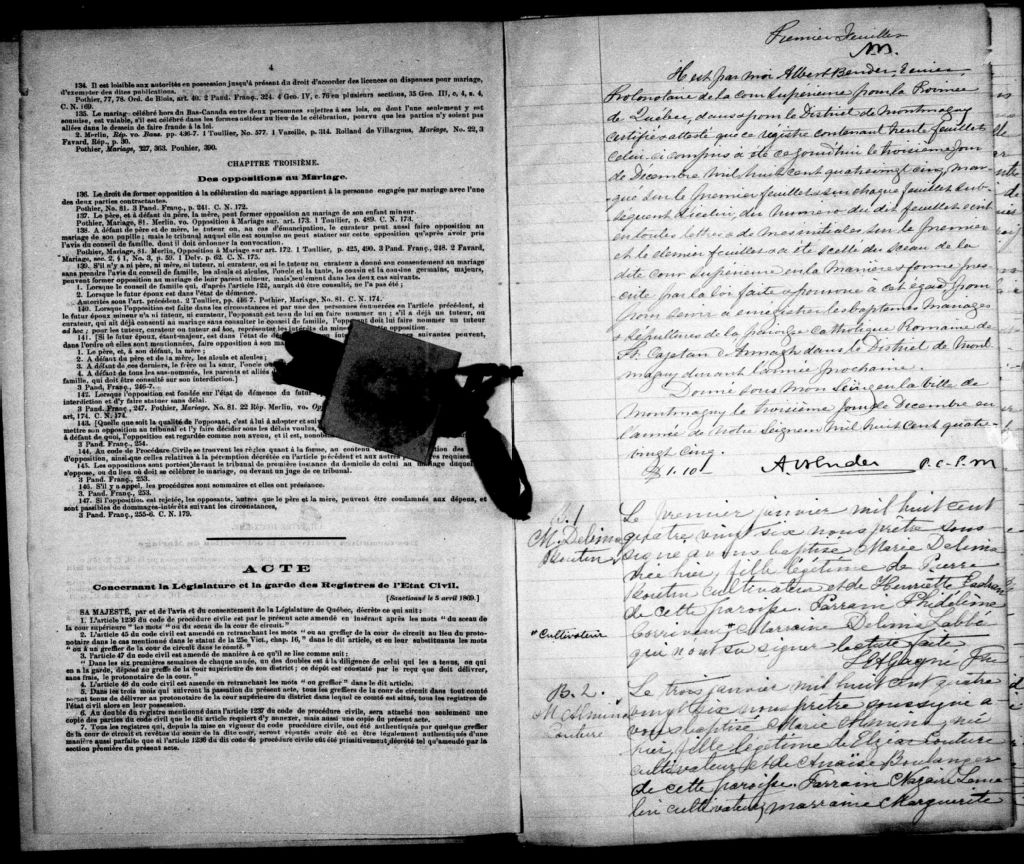 4
134. Il est loisible aux autorités en possession jusqu'à présent du droit d'accorder des licences ou dispenses pour mariage,
d'exempter des dites publications.
Pothier, 77, 78. Ord. de Blois, art. 40. 2 Pand. Franç., 324. 4 Geo. IV, c. 76 en plusieurs sections, 35 Geo. III, c, 4, s. 4,
C. N. 169.
135. Le mariage célébré hors du Bas-Canada entre deux personnes sujettes à ses lois, ou dont l'une seulement y est
soumise, est valable, s'il est célébré dans les formes usitées au lieu de la célébration, pourvu que les parties n'y soient pas
allées dans le dessein de faire fraude à la loi.
2. Merlin, Rép. vo. Bans. pp. 436-7. 1 Toullier, No. 577. 1 Vazeille, p. 314. Rolland de Villargues, Mariage, No. 22, 3
Favard, Rép., p. 30.
Pothier, Mariage, 327, 363. Pouhier, 390.
CHAPITRE TROISIÈME.
Des oppositions au Mariage.
136. Le droit de former opposition à la célébration du mariage appartient à la personne engagée par mariage avec l'une
des deux parties contractantes.
Pothier, No. 81. 3 Pand. Franç., p. 241. C. N. 172.
137. Le père, et à défaut du père, la mère, peut former opposition au mariage de son enfant mineur.
Pothier, Mariage, 81. Merlin, vo. Opposition à Mariage sur. art. 173. 1 Toullier, p. 489. C. N. 173.
138. A défaut de père et de mère, le tuteur ou, au cas d'émancipation, le curateur peut aussi faire opposition au
mariage de son pupille; mais le tribunal auquel elle est soumise ne peut statuer sur cette opposition qu'après avoir pris
l'avis du conseil de famille, dont il doit ordonner la convocation.
Pothier, Mariage, 81. Merlin, Opposition à Mariage sur art. 172. 1 Toullier, p. 425, 490. 3 Pand. Franç., 248. 2 Favard,
Mariage, sec. 2, § 1, No. 3, p. 59. 1 Delv. p. 62. C. N. 175.
139. S'il n'y a ni père, ni mère, ni tuteur, ni curateur, ou si le tuteur ou curateur a donné son consentement au mariage
sans prendre l'avis du conseil de famille, les aïeuls et aïeules, l'oncle et la tante, le cousin et la cousine germains, majeurs,
peuvent former opposition au mariage de leur parent mineur, mais seulement dans les deux cas suivants.
1. Lorsque le conseil de famille qui, d'après l'article 122, aurait dû être consulté, ne l'a pas été;
2. Lorsque le futur époux est dans l'état de démence.
Autorités sous l'art. précédent. 2 Toullier, pp. 446 7. Pothier, Mariage, No. 81. C. N. 174.
140. Lorsque l'opposition est faite dans les circonstances et par une des personnes énumérées en l'article précédent, si
le futur époux mineur n'a ni tuteur, ni curateur, l'opposant est tenu de lui en faire nommer un; s'il a déjà un tuteur, ou
curateur, qui ait déjà consenti au mariage sans consulter le conseil de famille, l'opposant doit lui faire nommer un tuteur
ad hoc; pour les tuteur, curateur ou tuteur ad hoc, représenter les intérêts du mineur opposition.
141. [Si le futur époux, étant majeur, est dans l'état de suivantes peuvent,
dans l'ordre où elles sont mentionnées, faire opposition à son
1. Le père, et, à son défaut, la mère;
2. A défaut du père et de la mère, les aïeuls et aïeules;
3. A défaut de ces derniers, le frère ou la sœur, l'oncle ou
4. A défaut de tous les sus-nommés, les parents et alliés
famille, qui doit être consulté sur son interdiction.]
3 Pand. Franç., 246-7.
142. Lorsque l'opposition est fondée sur l'état de démence du futur
interdiction et d'y faire statuer sans délai.
3 Pand. Franç., 247. Pothier, Mariage, No. 81. 22 Rép. Merlin, vo.
art, 174. C. N. 174.
143. [Quelle que soit la qualité de l'opposant, c'est à lui à adopter et suivre
mettre son opposition au tribunal et l'y faire décider sous les délais voulus,
à défaut de quoi, l'opposition est regardée comme non avenu, et il est,
3 Pand. Franç., 254.
144. Au code de Procédure Civile se trouvent les règles quant à la forme, au contenu
d'opposition, ainsi que celles relatives à la péremption décrétée en l'article précédent et aux autres requises.
145. Les oppositions sont portées devant le tribunal de première instance du domicile de celui au mariage duquel
s'oppose, ou du lieu où doit se célébrer le mariage, ou devant un juge de ce tribunal.
3 Pand. Franç., 253.
146. S'il y a appel, les procédures sont sommaires et elles ont préséance.
3 Pand. Franç., 253.
147. Si l'opposition est rejetée, les opposants, autres que le père et la mère, peuvent être condamnés aux dépens, et
sont passibles de dommages-intérêts suivant les circonstances,
3 Pand. Franç., 255-6. C. N. 179.
ACTE
Concernant la Législature et la garde des Registres de l'Etat Civil.
[Sanctionné le 5 avril 1869.]
SA MAJESTÉ, par et de l'avis et du consentement de la Législature de Québec, décrète ce qui suit:
1. L'article 1236 du code de procédure civile est par le présent acte amendé en insérant après les mots "du sceau de
la cour supérieure" les mots "ou du sceau de la cour de circuit."
2. L'article 45 du code civil est amendé en retranchant les mots "ou au greffe de la cour de circuit au lieu du proto-
notaire dans le cas mentionné dans le statut de la 25e Vict., chap. 16," dans le dit article, et en leur substituant les mots
"ou à un greffe de la cour de circuit dans le comté."
3. l'article 47 du code civil est amendé de manière à ce qu'il se lise comme suit:
"Dans les six premières semaines de chaque année, un des doubles est à la diligence de celui qui les a tenus, ou qui
en a la garde, déposé au greffe de la cour supérieure de son district; ce dépôt est constaté par le reçu que doit délivrer,
sans frais, le protonotaire de la cour."
4. L'article 48 du code civil est amendé en retranchant les mots "on greffier" dans le dit article.
5. Dans les trois mois qui suivront la passation du présent acte, tous les greffiers de la cour de circuit dans tout comté
seront tenus de délivrer au protonotaire de la cour supérieure du district dans lequel ce comté est situé, tous les registres de
l'état civil alors en leur possession.
6. Au double du registre mentionné dans l'article 1237 du code de procédure civile, sera attaché non seulement une
copie des parties du code civil que le dit article requiert d'y annexer, mais aussi une copie du présent acte.
7. Tous les registres qui, depuis la mise en vigueur du code procédure civile, ont été authentiqués par quelque greffier
de la cour de circuit et revêtus du sceau de la dite cour, seront réputés avoir été et être légalement authentiqués d'une
manière aussi parfaite que si l'article 1236 du dit code de procédure civile eût été primitivement décrété tel qu'amendé par la
section première du présent acte.
Premier feuillet
Il est par moi Albert Bender Ecuier,
Protonotaire de la cour Superieure pour la Province
de Quebec, dans & pour le District de Montmagny
certifié & attesté que ce registre contenant trente feuillets
celui-ci compris à été ce jourd'hui le troisième jour
de Décembre mil huit cent quatre vingt cinq, mar-
qué sur le premier feuillet & sur chaque feuillet sub-
séquent d'icelui, du numero du dit feuillet écrit
en toutes lettres & de mes initiales sur le premier
et le dernier feuillet & a été scellé du sceau de la
dite cour Superieure en la manière & forme pres-
crite par la loi faite & pourvue à cet égard pour
pour servir à enregistrer les baptêmes mariages
& sépultures de la paroisse Catholique Romaine de
St. Cajetan d'Armagh dans le District de Mont-
magny durant l'année prochaine.
Donné sous mon Seing en la ville de
Montmagny le troisième jour de Decembre en
l'année de Notre Seigneur mil huit cent quatre
vingt cinq.
$1.10 A Bender P.C.S.M
B. 1
M. Delima
Boutin
Le premier janvier mil huit cent
quatre vingt six nous prêtre sous-
signé avons baptisé Marie Delima
née hier, fille légitime de Pierre
Boutin cultivateur et de Henriette
de cette paroisse. Parrain Philélème
"Cultivateur
Corriveau" Marraine Delima Labbé
qui n'ont su signer. Lecture faite
Gagné Ptre
B. 2.
M. Almina
Couture
Le trois janvier mil huit cent quatre
vingt six nous prêtre soussigné a
vons baptisé Marie Almina née
hier, fille légitime de Elzéar Couture
cultivateur et de Anaïse Boulanger
de cette paroisse. Parrain Nazaire
cultivateur, marraine Marguerite